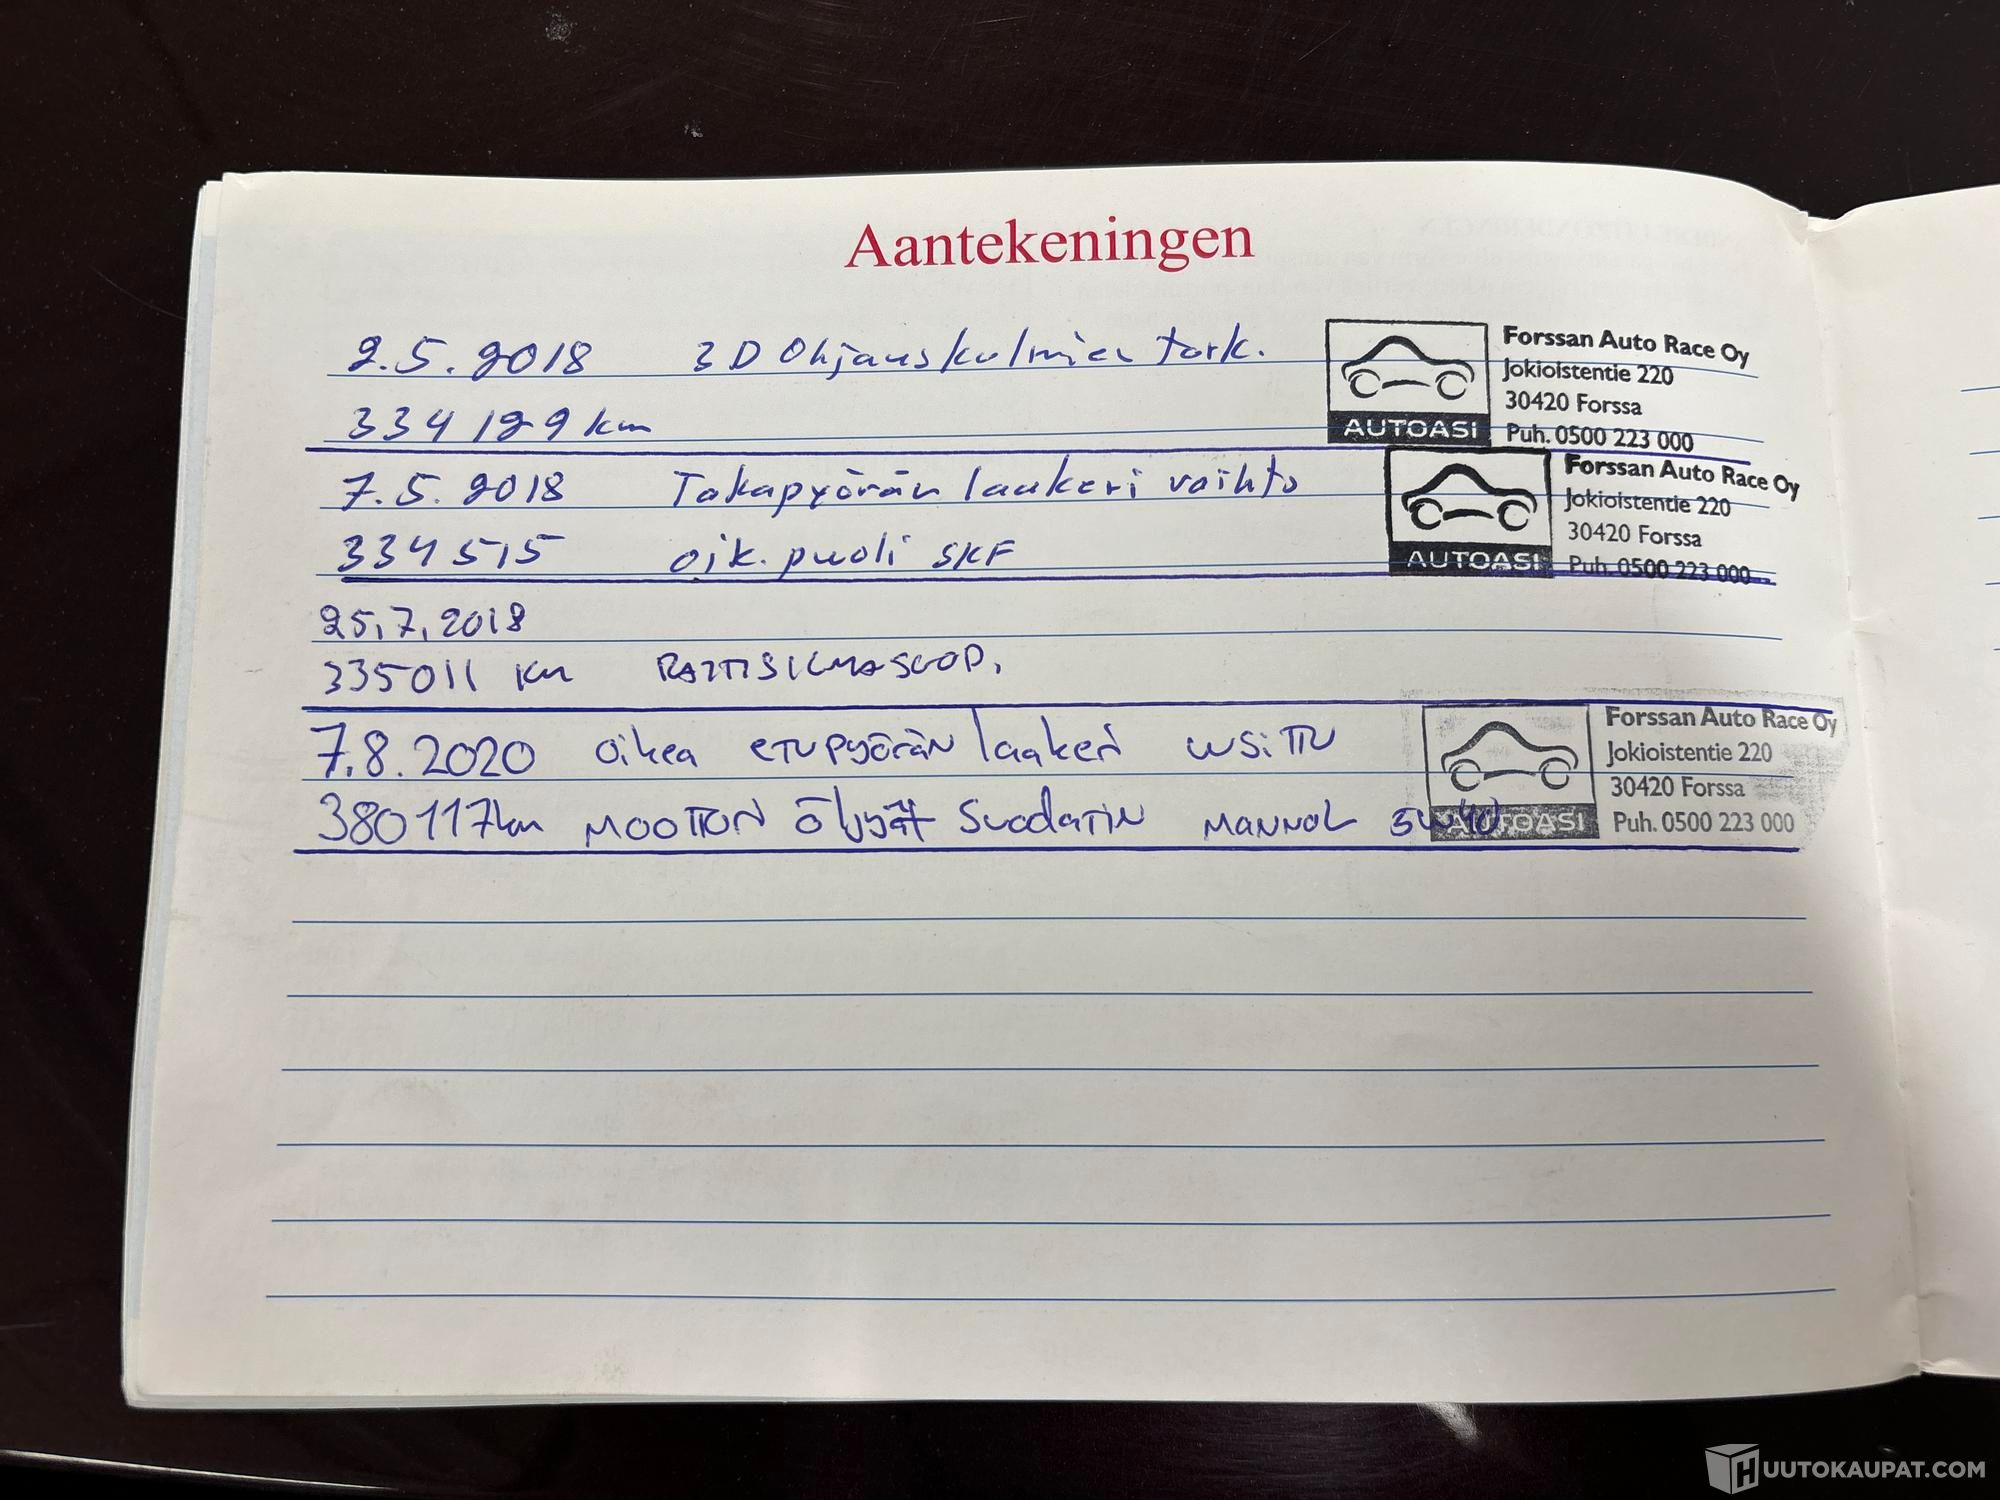 Aantekeningen
2.5.2018 3D Ohjauskulmien tark.
334 189 km
Forssan Auto Race Oy
Jokioistentie 220
30420 Forssa
AUTOASI Puh. 0500 223 000
7.5.2018 Takapyörän laakeri vaihto
334 515 oik. puoli SKF
Forssan Auto Race Oy
Jokioistentie 220
30420 Forssa
AUTOASI Puh. 0500 223 000
25.7.2018
335011 km
7.8.2020 oikea etupyörän laakeri uusittu
380117km MOOTTORI öljyt Suodatin MANNOL 5W40
Forssan Auto Race Oy
Jokioistentie 220
30420 Forssa
AUTOASI Puh. 0500 223 000
HUUTOKAUPAT.COM